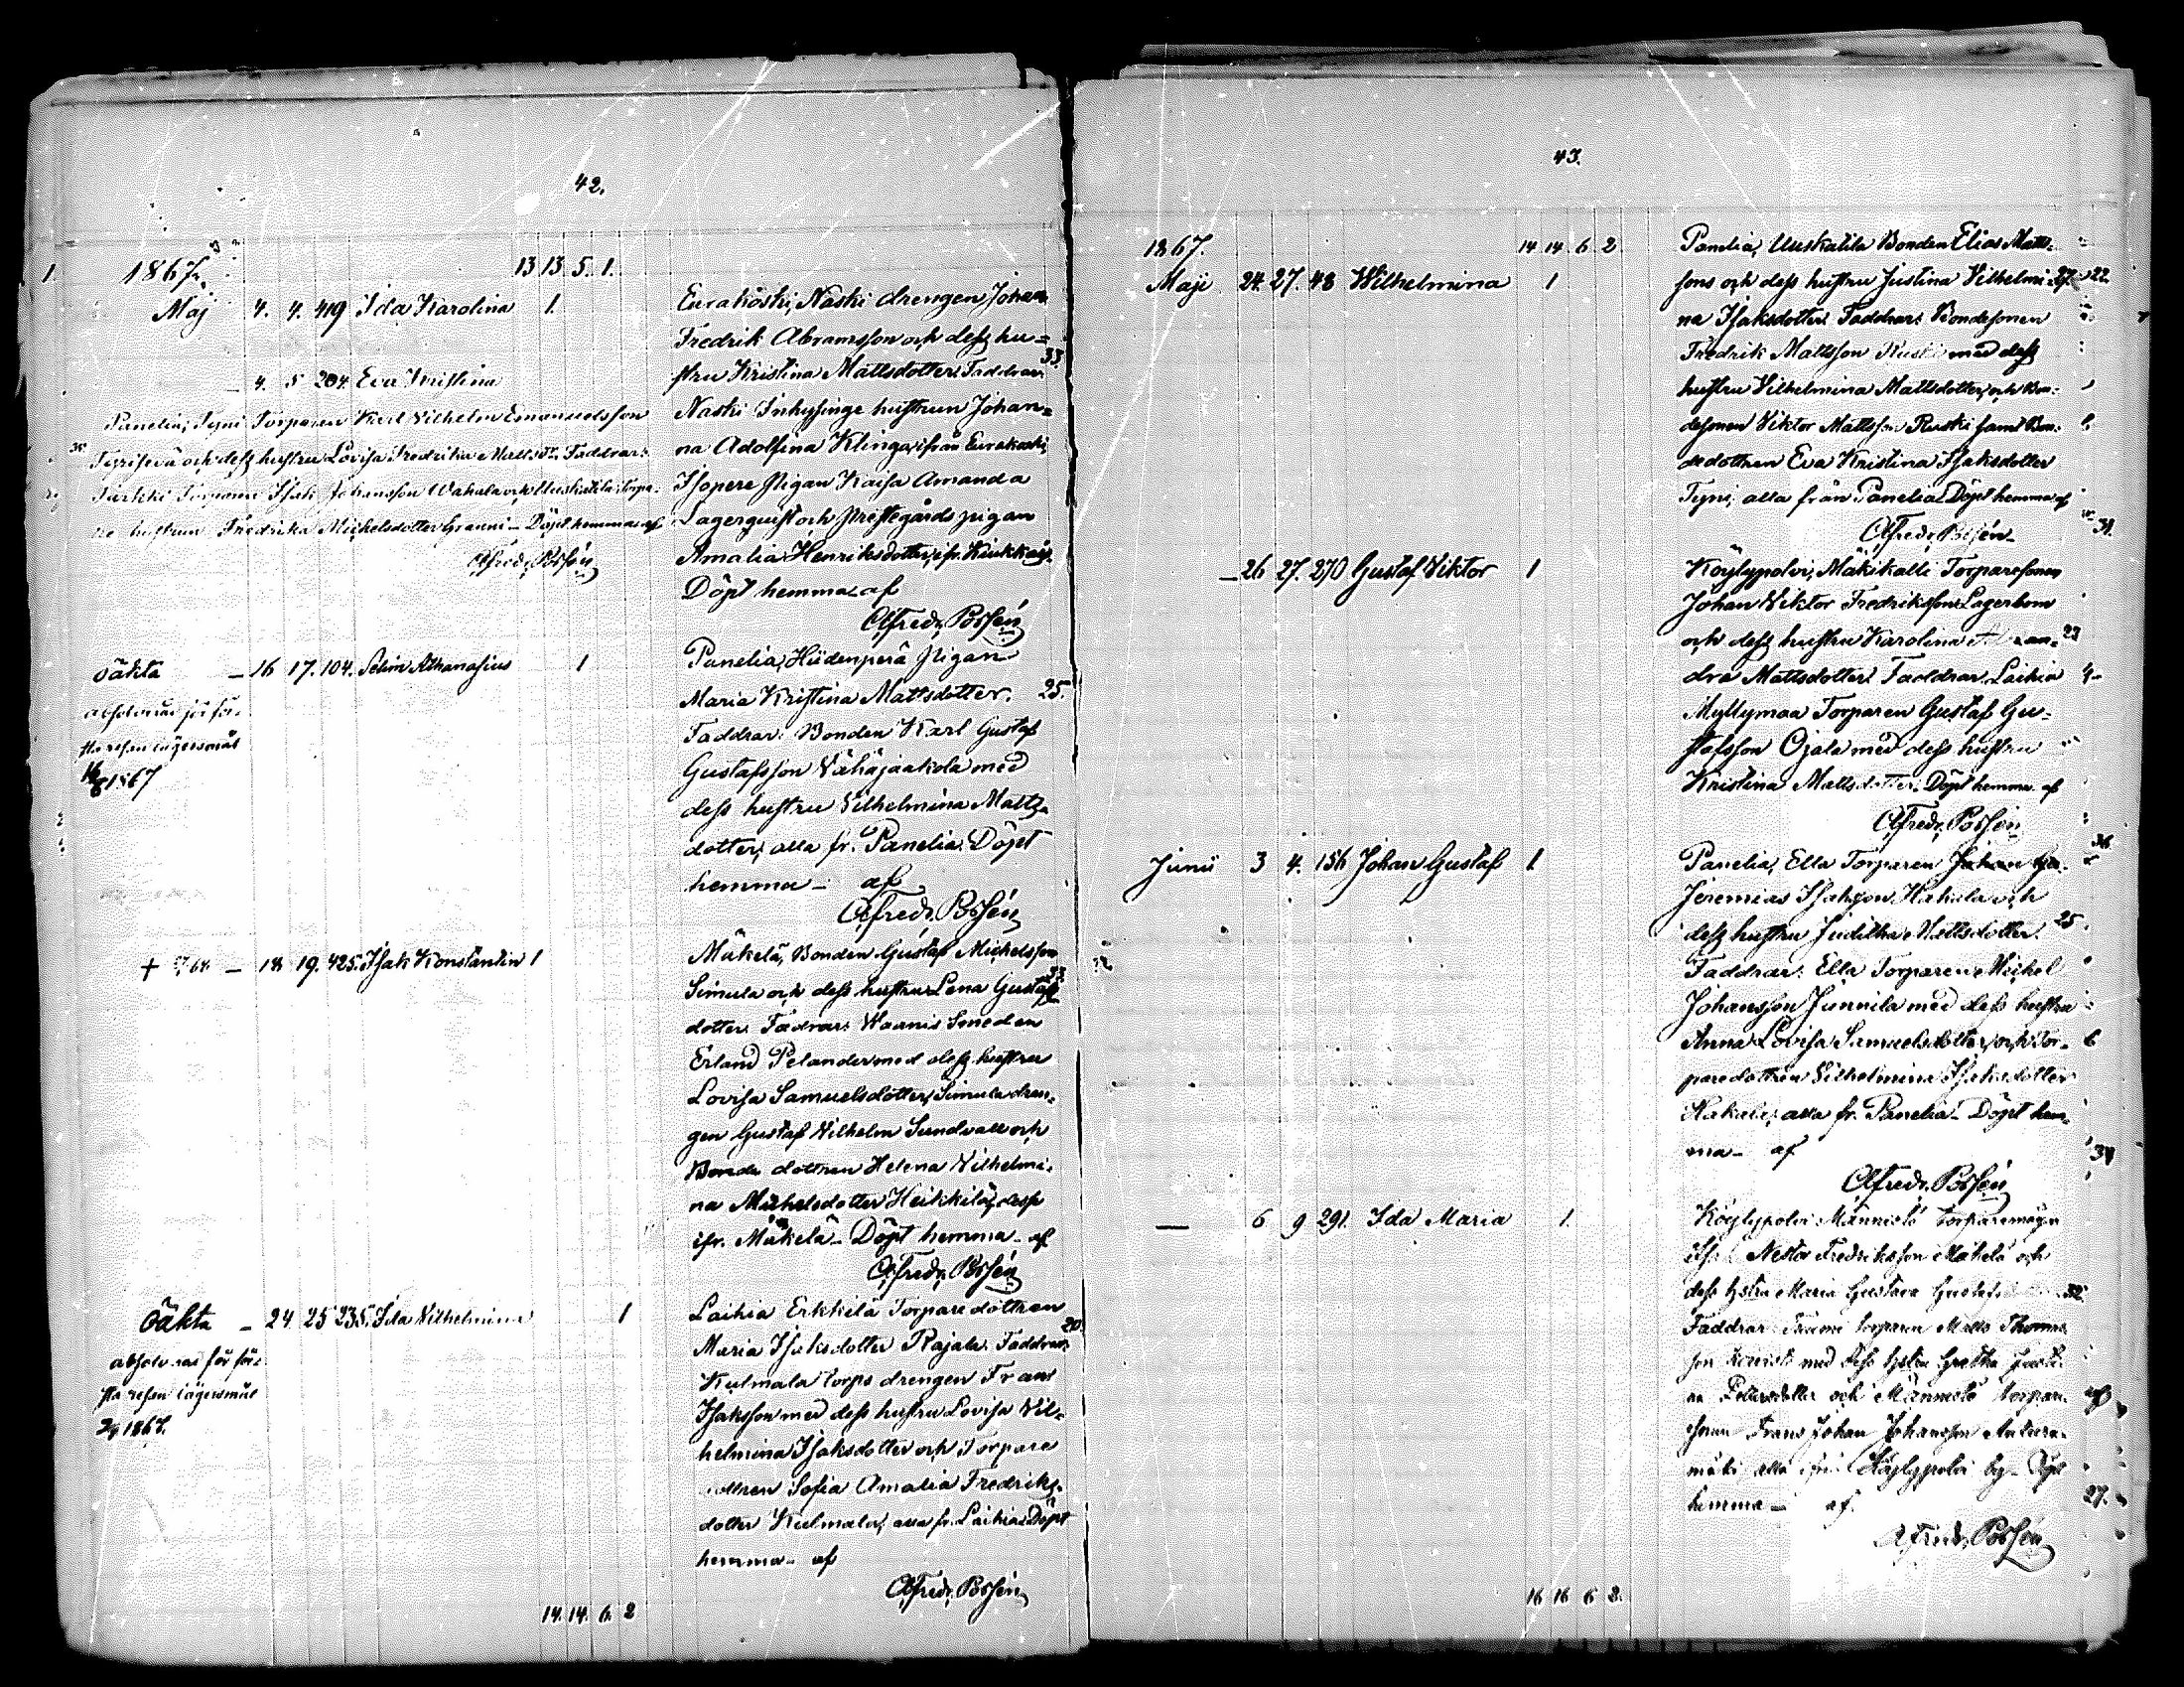 42.
1867.
13 13 5. 1.
Maj 4. 4. 419 Ida Karolina 1.
Eurakoski, Naski drengen Johan
Fredrik Abramsson och dess hu=
stru Kristina Mattsdotter. Faddrar 33.
Naski Inhysinge hustrun Johan=
na Adolfina Kling, ifrån Eurakoski,
Isopere pigan Kaisa Amanda
Lagerquist och Prestegårds pigan
Amalia Henriksdotter, fr. Kiukkais.
Döpt hemma af
Alfred Possén
— 4. 5 204. Eva Kristina
Panelia, Tyni Torparen Karl Vilhelm Emanuelsson
35. och dess hustru Lovisa Fredrika Mattsdr. Faddrar:
Torparen Isak Johansson Wahala och Uuskatila Torpa-
re hustrun Fredrika Michelsdotter Granni — Döpt hemma af
Alfred Possén
oäkta — 16 17. 104. Selim Athanasius 1
absolveras för för-
sta resan lägersmål
1867
Panelia, Hiidenperä Pigan
Maria Kristina Mattsdotter. 25.
Faddrar: Bonden Karl Gustaf
Gustafsson Vähäjaakola med
dess hustru Vilhelmina Matts-
dotter, alla fr. Panelia. Döpt
hemma — af
Alfred Possén
+ 68. — 18 19. 425. Isak Konstantin 1
Mäkelä, Bonden Gustaf Michelsson
Simula och dess hustru Lena Gustafs 33.
dotter. Fadrar: Waanis Smeden
Erland Pelander med dess hustru
Lovisa Samuelsdotter, Simula dren-
gen Gustaf Vilhelm Sundvall och
Bonde dottren Helena Vilhelmi-
na Michelsdotter Heikkilä, desse
ifr. Mäkelä — Döpt hemma — af
Alfred Possén
Oäkta — 24 25 235. Ida Vilhelmina 1
absolveras för för-
sta resan lägersmål
1867.
Laihia Erkkilä Torpare dottren
Maria Isaksdotter Rajala. Faddrar: 20.
Kulmala torps drengen Frans
Isaksson med dess hustru Lovisa Vil-
helmina Isaksdotter och Torpare
dottren Sofia Amalia Fredriks-
dotter Kulmala, alla fr. Laihia. Döpt
hemma — af
Alfred Possén
14. 14. 6. 2
43.
1867.
14 14 6 2
Maji 24. 27. 48 Wilhelmina 1
Panelia, Uuskatila Bonden Elias Matts-
sons och dess hustru Justina Vilhelmi- 27. 22.
na Isaksdotter. Faddrar: Bondesonen
Fredrik Mattsson Ruski med dess
hustru Vilhelmina Mattsdotter, och Bon-
desonen Viktor Mattsson Ruski samt Bon-
dedottren Eva Kristina Isaksdotter
Tyni, alla från Panelia. Döpt hemma af
Alfred Possén — 31.
— 26 27. 270 Gustaf Viktor 1
Köylypolvi, Mäkikalli Torparesonen
Johan Viktor Fredriksson Lagerbom
och dess hustru Karolina 23
dra Mattsdotter. Faddrar: Laihia
Myllymaa Torparen Gustaf Gu-
stafsson Ojala med dess hustru
Kristina Mattsdotter. Döpt hemma af
Alfred Possén
36.
Junii 3 4. 156 Johan Gustaf 1
Panelia, Ella Torparen Johan
Jeremias Isaksson Hakala och
dess hustru Juditha Mattsdotter. 25.
Faddrar: Ella Torparen Michel
Johansson Junnila med dess hustru
Anna Lovisa Samuelsdotter, och Tor-
paredottren Vilhelmina Isaksdotter
Hakala, alla fr. Panelia — Döpt hem-
ma — af
Alfred Possén
— 6 9 291. Ida Maria 1.
Köylypolvi Männistö torparemågen
Nestor Fredriksson Mäkelä och
dess hstru Maria Gustava 32.
Faddrar: torparen Matts Thomas-
son med dess hstru Gretha
Petersdotter och Männistö torpare-
sonen Frans Johan Johansson
mäki alla ifrån Köylypolvi by — Döpt
hemma — af. 27.
Alfred Possén
16 16 6 2.